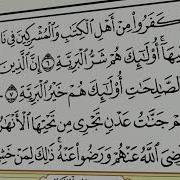 كَفَرُوا۟ مِنْ أَهْلِ ٱلْكِتَٰبِ وَٱلْمُشْرِكِينَ فِى نَا
يهَآ ۚ أُو۟لَٰٓئِكَ هُمْ شَرُّ ٱلْبَرِيَّةِ ٦ إِنَّ ٱلَّذِينَ
ٱلصَّٰلِحَٰتِ أُو۟لَٰٓئِكَ هُمْ خَيْرُ ٱلْبَرِيَّةِ ٧
هِمْ جَنَّٰتُ عَدْنٍ تَجْرِى مِن تَحْتِهَا ٱلْأَنْهَٰرُ
ضِىَ ٱللَّهُ عَنْهُمْ وَرَضُوا۟ عَنْهُ ۚ ذَٰلِكَ لِمَنْ خَشِ